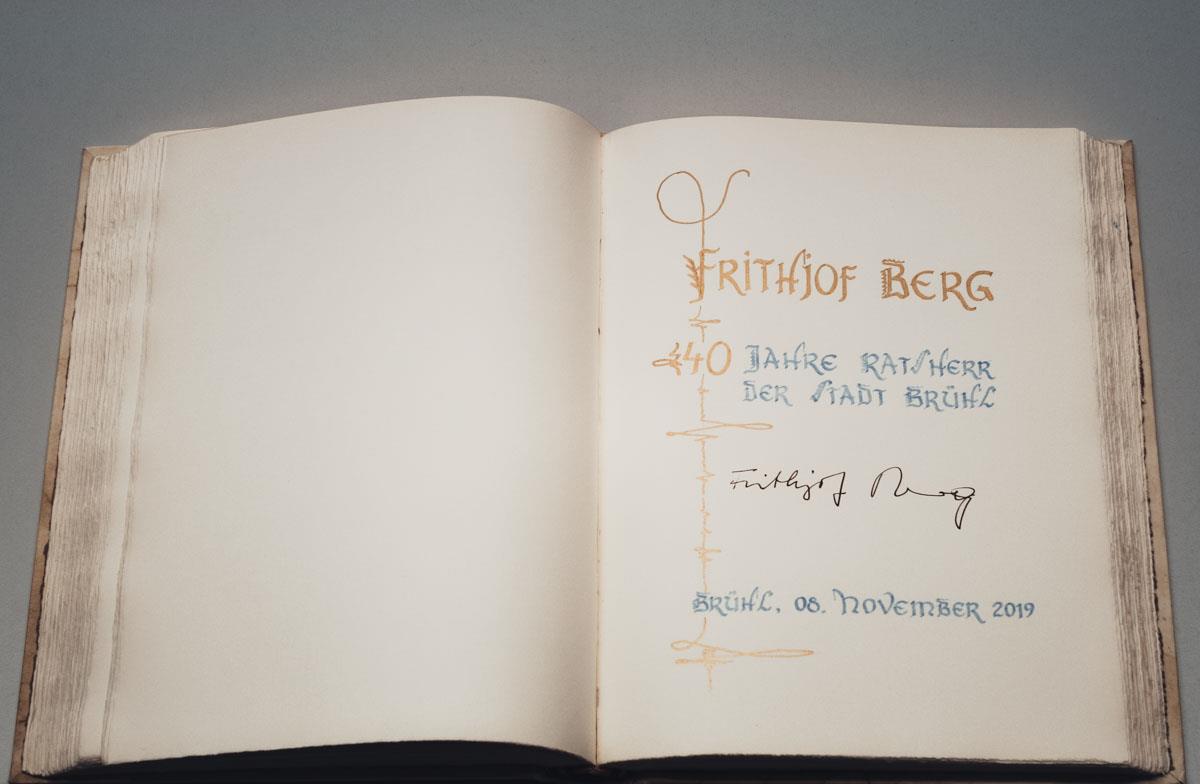 FRITHJOF BERG
40 JAHRE RATSHERR
DER STADT BRÜHL
Frithjof Berg
BRÜHL, 08. NOVEMBER 2019